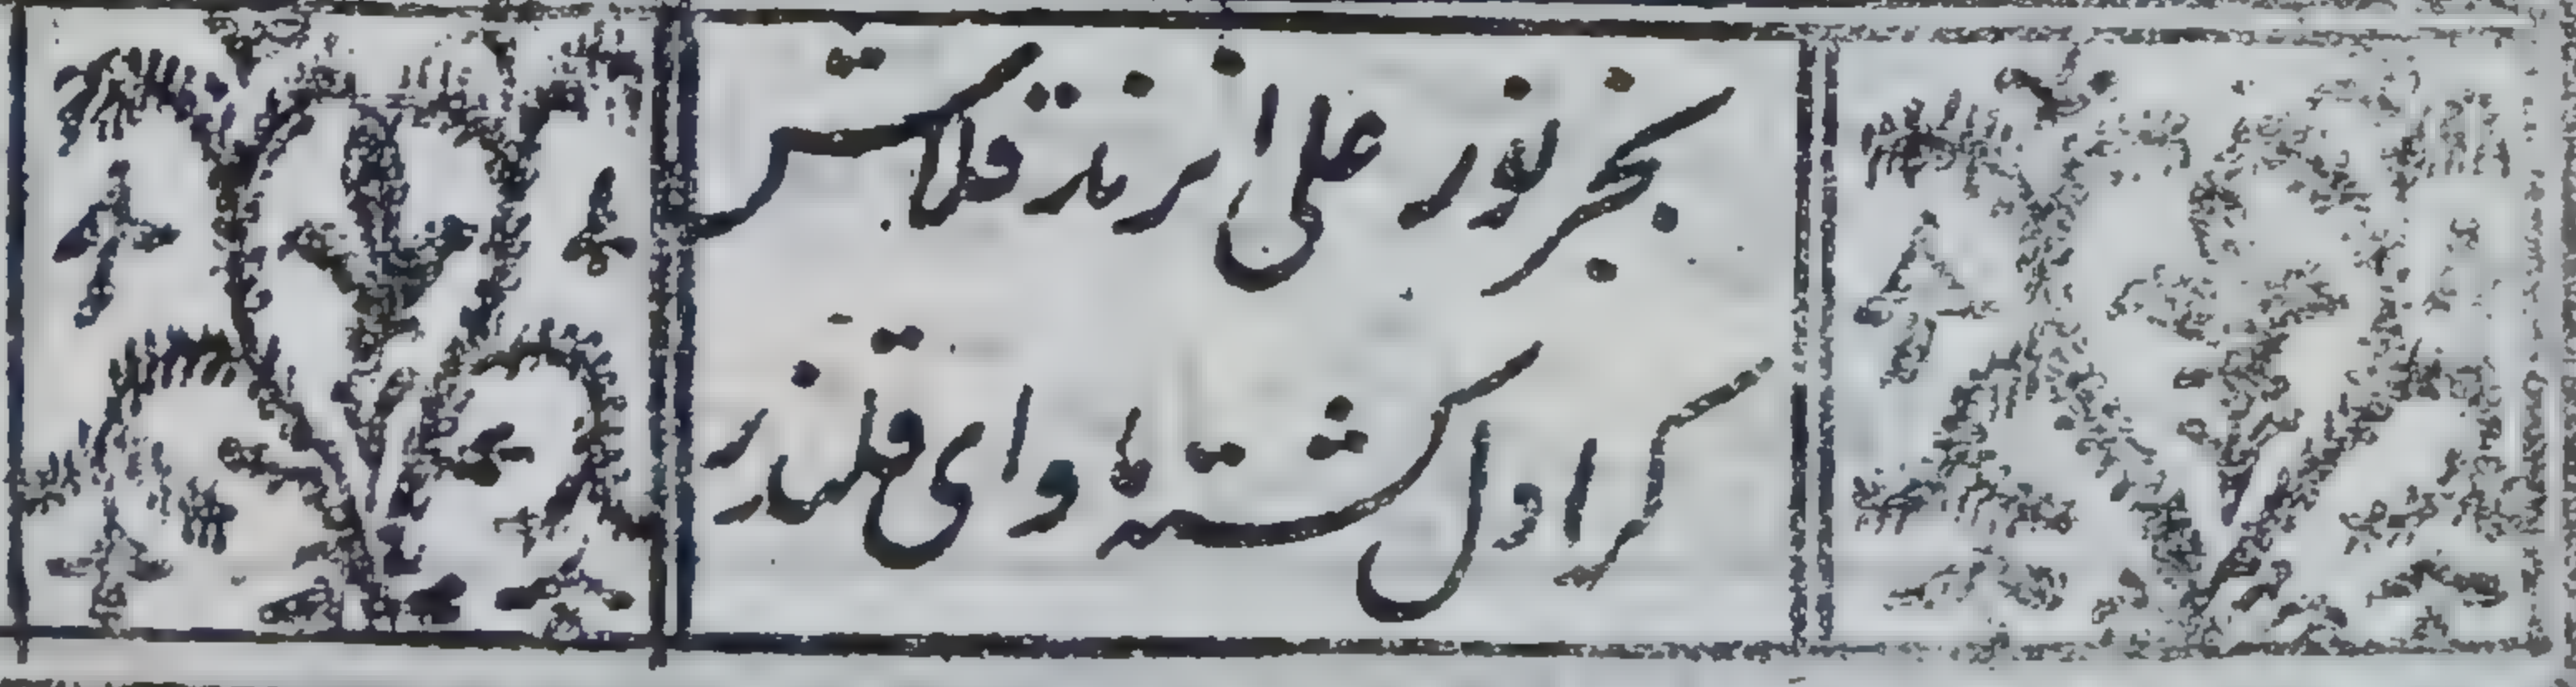 بجز نور علی از رند قلاش
کرا دل کشته ماوای قلندر